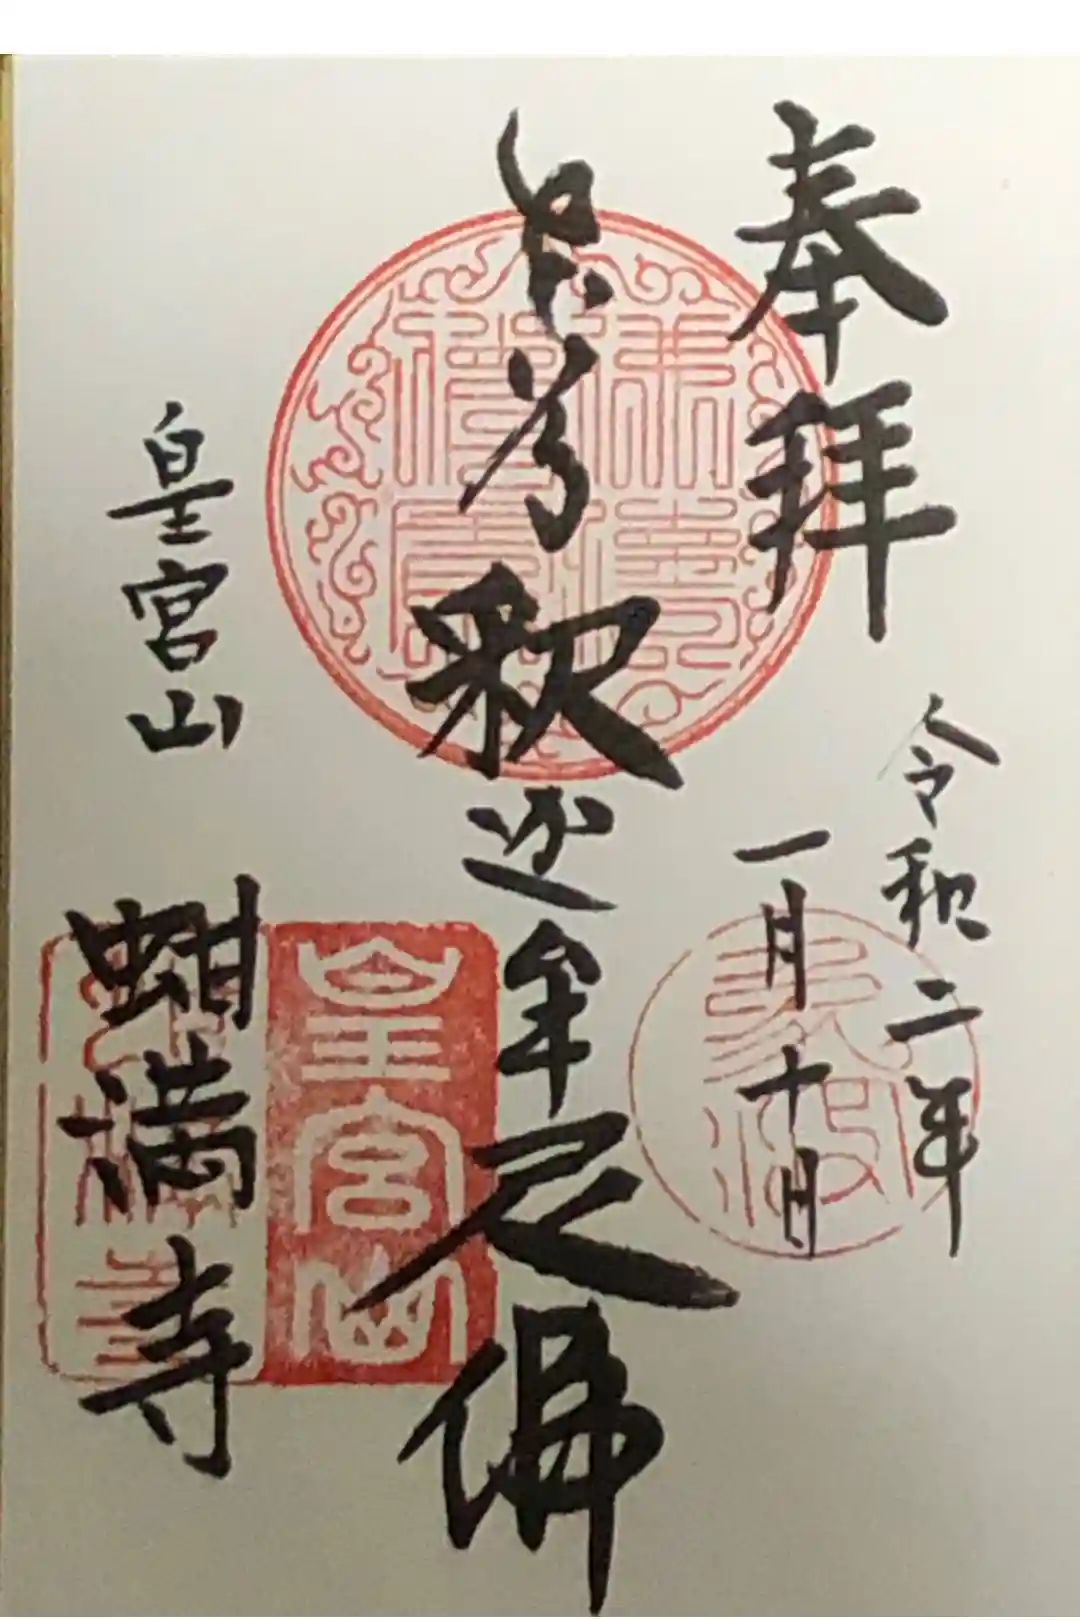 奉拝
令和二年
一月十日
釈迦牟尼佛
皇宮山
皇宮山
蚶満寺